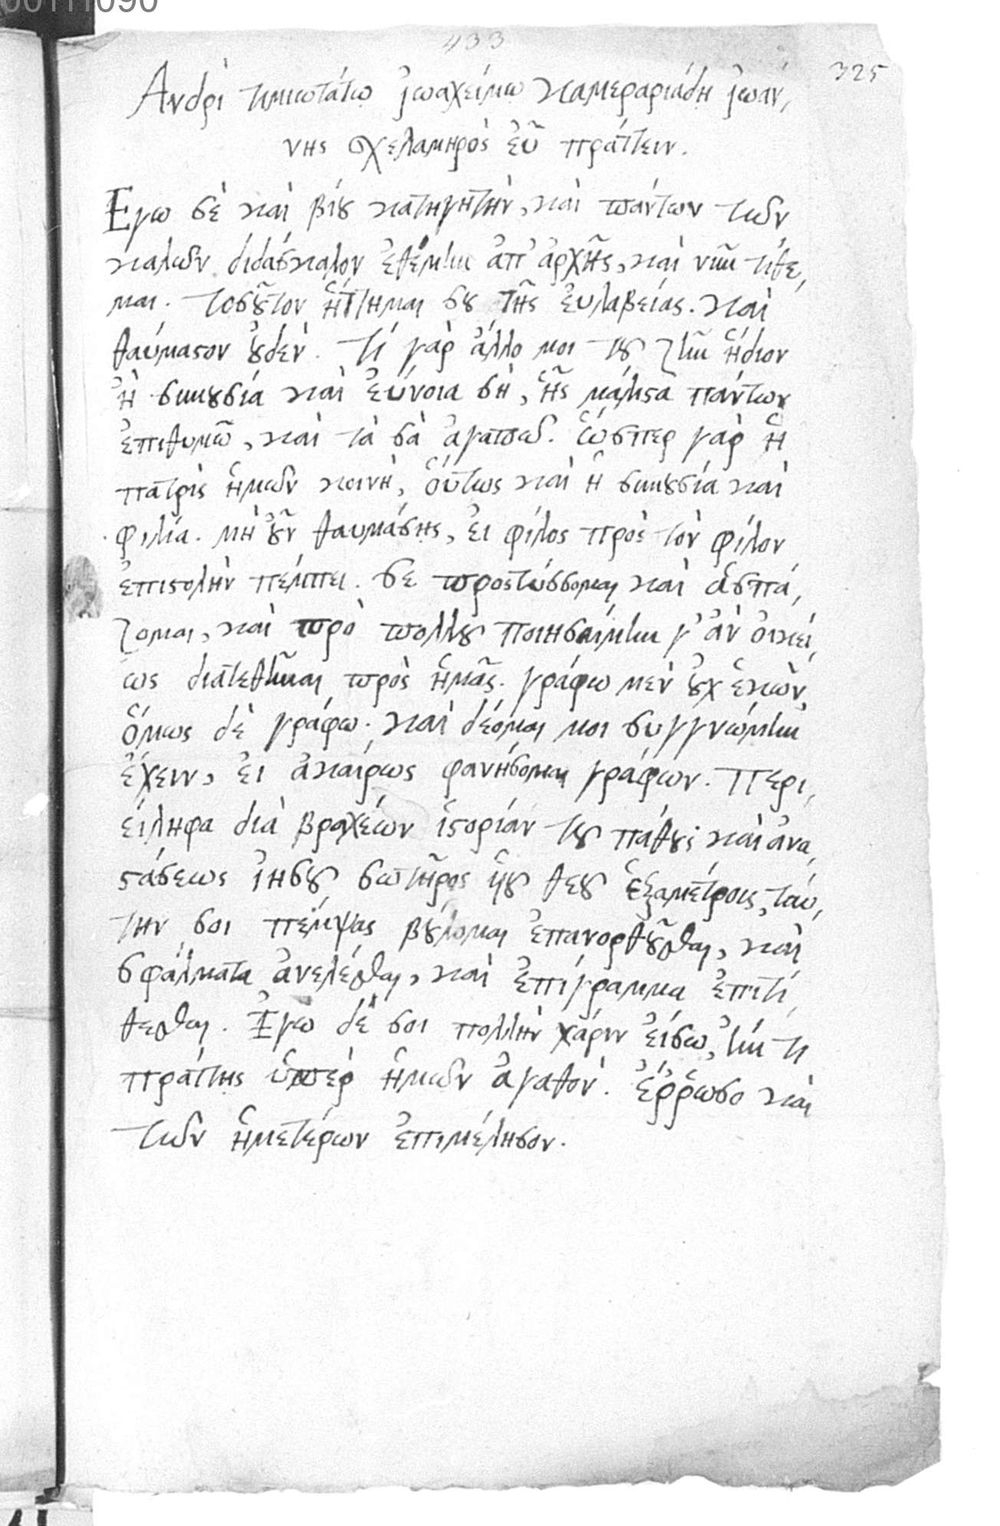 00111090
433
325
Ἀνδρὶ τιμιωτάτῳ ἰωαχείμῳ καμεραριάδῃ ἰωάν,
νης σχελαμηρὸς εὖ πράττειν.
Εγω σὲ καὶ βίου κατηγητὴν, καὶ πάντων τῶν
καλῶν διδάσκαλον ἐθέμην ἀπ' ἀρχῆς, καὶ νῦν τίθε,
μαι. τοσοῦτον ἥττημαι σου τῆς ἐυλαβείας. καὶ
θαύμαστον οὐδέν. τί γὰρ ἄλλο μοι τοῦ ζῆν ἥδιον
ἢ συνουσία καὶ ἐύνοια σὴ, ἧς μάλιστα πάντων
ἐπιθυμῶ, καὶ τὰ σὰ ἀγαπῶ. ὥσπερ γὰρ ἡ
πατρὶς ἡμῶν κοινὴ, οὕτως καὶ ἡ συνουσία καὶ
φιλία. μὴ οὖν θαυμάσῃς, ἐι φίλος πρὸς τὸν φίλον
ἐπιστολὴν πέμπει. σε προστάσσομαι καὶ ἀσπά,
ζομαι, καὶ πρὸ πολλοῦ ποιησαίμην γ' ἂν ὀικεί,
ως διατεθῆναι πρὸς ἡμᾶς. γράφω μὲν οὐχ ἑκὼν,
ὅμως δὲ γράφω. καὶ δέομαι μοι συγγνώμην
ἔχειν, ἐι ἀκαίρως φανήσομαι γράφων. Περι,
είληφα διὰ βραχέων ἱστορίαν τοῦ πάθους καὶ ἀνα,
στάσεως ἰησοῦ σωτῆρος ὑιοῦ θεοῦ ἑξαμέτροις, ταύ,
την σοι πέμψας βούλομαι ἐπανορθοῦσθαι, καὶ
σφάλματα ἀνελέσθαι, καὶ ἐπίγραμμα ἐπιτί
θεσθαι. Ἐγω δέ σοι πολλὴν χάριν ἐίσω, ἤν τι
πράττης ὑπὲρ ἡμῶν ἀγαθόν. ἔῤῥωσο καὶ
τῶν ἡμετέρων ἐπιμέλησον.